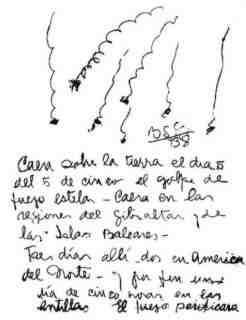 BSG
38
Caera sobre la tierra el dia 5
del 5 de cinco el golpe de
fuego estelar - Caera en las
regiones del Gibraltar y de
las Islas Baleares -
Tres dias alli - dos en America
del Norte - y por fin un
dia de cinco horas en las
Antillas El fuego purificara